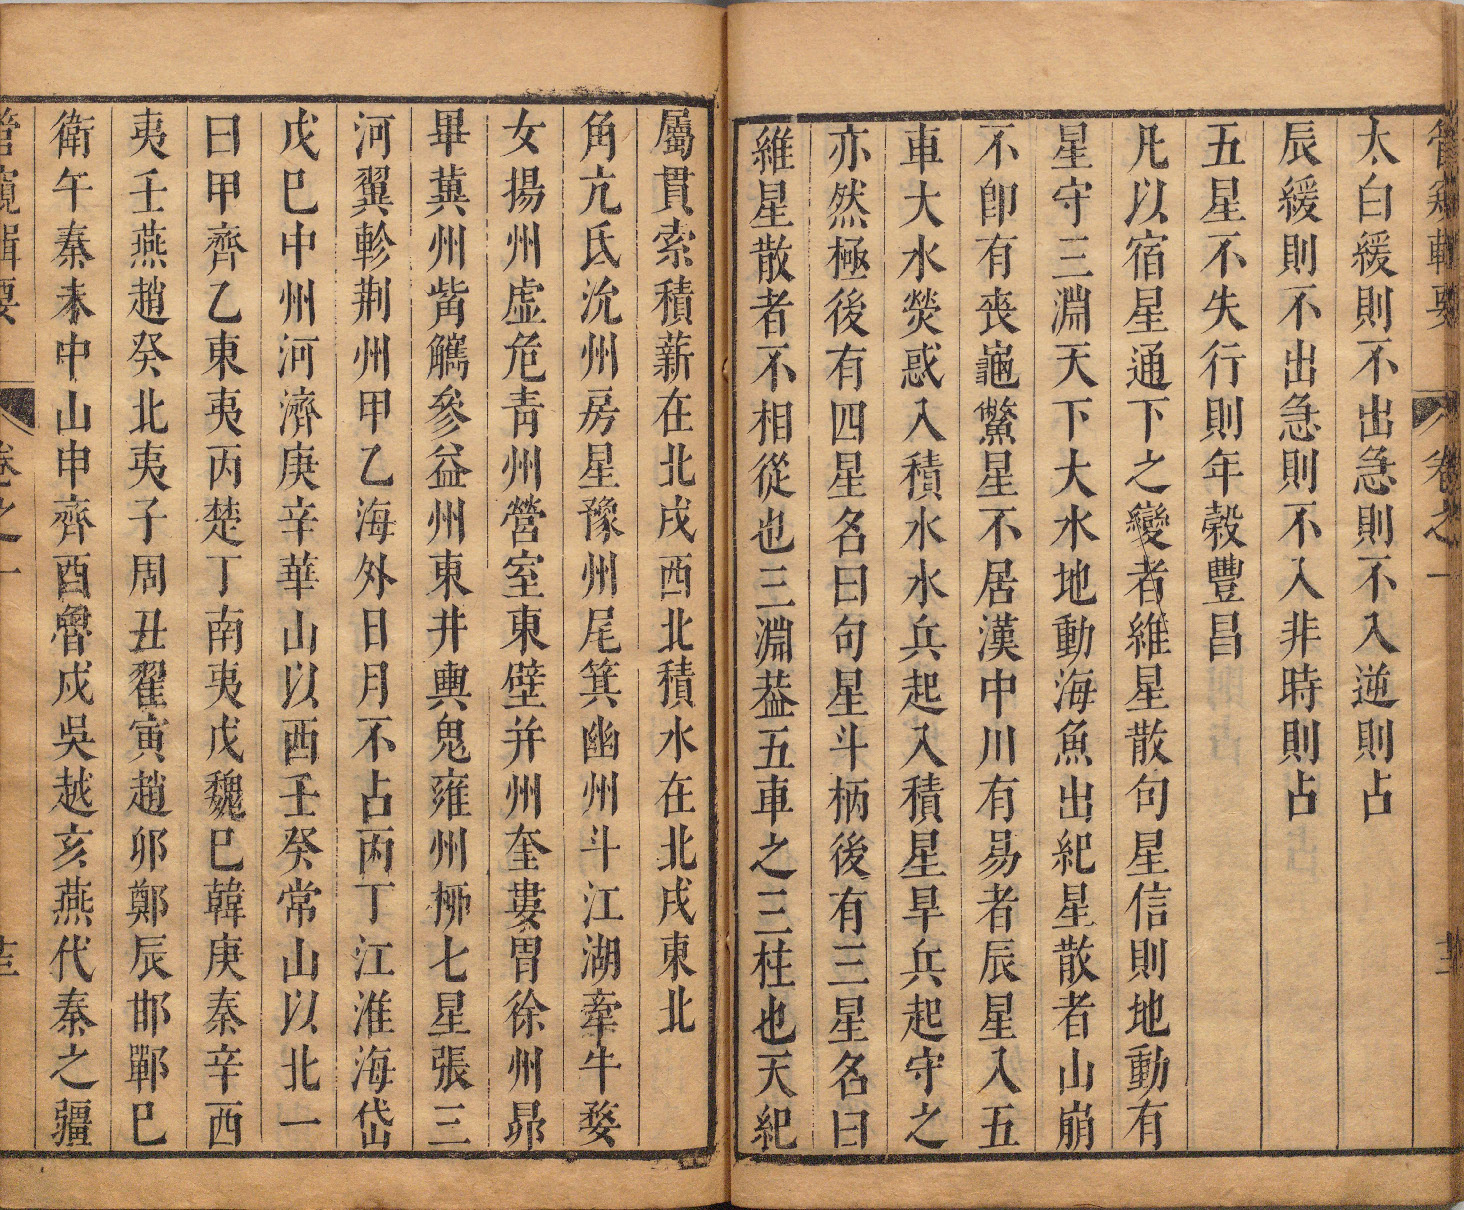 管窺輯要 卷之一
太白緩則不出急則不入逆則占
辰緩則不出急則不入非時則占
五星不失行則年穀豐昌
凡以宿星通下之變者維星散句星信則地動有
星守三淵天下大水地動海魚出紀星散者山崩
不卽有喪龜鱉星不居漢中川有易者辰星入五
車大水熒惑入積水水兵起入積星旱兵起守之
亦然極後有四星名曰句星斗柄後有三星名曰
維星散者不相從也三淵葢五車之三柱也天紀
屬貫索積薪在北戌西北積水在北戌東北
角亢氐沇州房星豫州尾箕幽州斗江湖牽牛婺
女揚州虛危青州營室東壁并州奎婁胃徐州昴
畢冀州觜觿參益州東井輿鬼雍州桺七星張三
河翼軫荆州甲乙海外日月不占丙丁江淮海岱
戊巳中州河濟庚辛華山以西壬癸常山以北一
曰甲齊乙東夷丙楚丁南夷戊魏巳韓庚秦辛西
夷壬燕趙癸北夷子周丑翟寅趙卯鄭辰邯鄲巳
衛午秦未中山申齊酉魯戌吳越亥燕代秦之疆
管窺輯要 卷之一